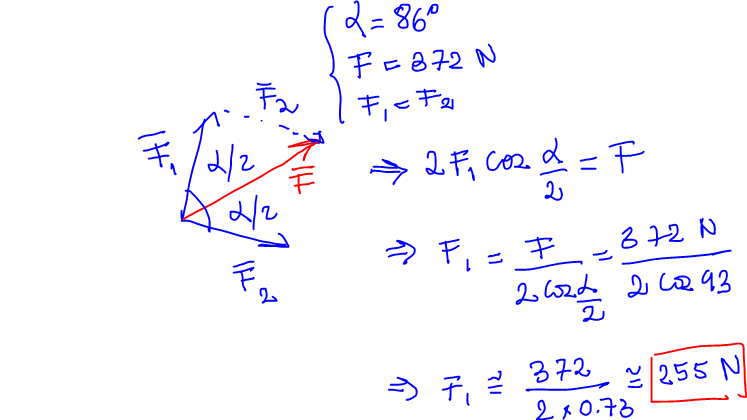 α = 86°
F = 372 N
F₁ = F₂
F̅₂
F̅₁
α/2
F̅
α/2
F̅₂
⇒ 2F₁ cos α/2 = F
⇒ F₁ = F / 2 cos α/2 = 372 N / 2 cos 93
⇒ F₁ ≅ 372 / 2 × 0.73 ≅ 255 N